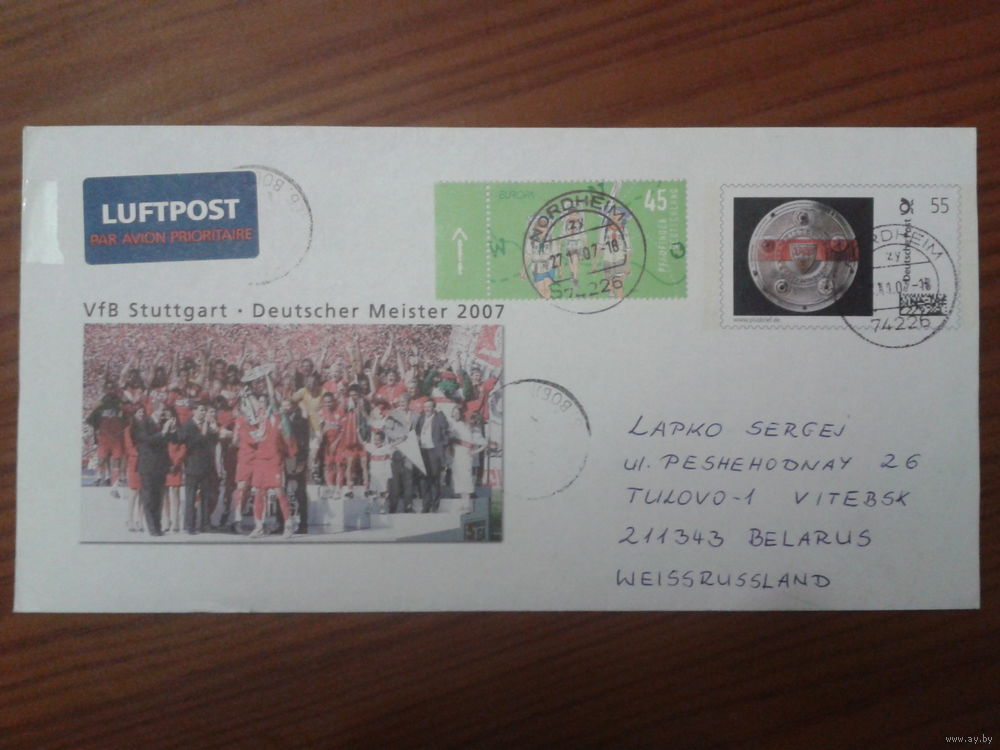 LUFTPOST
PAR AVION PRIORITAIRE
EUROPA
45
PFADFINDER
DEUTSCHLAND
W
N
O
NORDHEIM
zy
27.11.07-18
74226
55
Deutsche Post
www.plusbrief.de
NORDHEIM
zy
74226
VfB Stuttgart · Deutscher Meister 2007
LAPKO SERGEJ
ul. PESHEHODNAY 26
TULOVO-1 VITEBSK
211343 BELARUS
WEISSRUSSLAND
www.ay.by